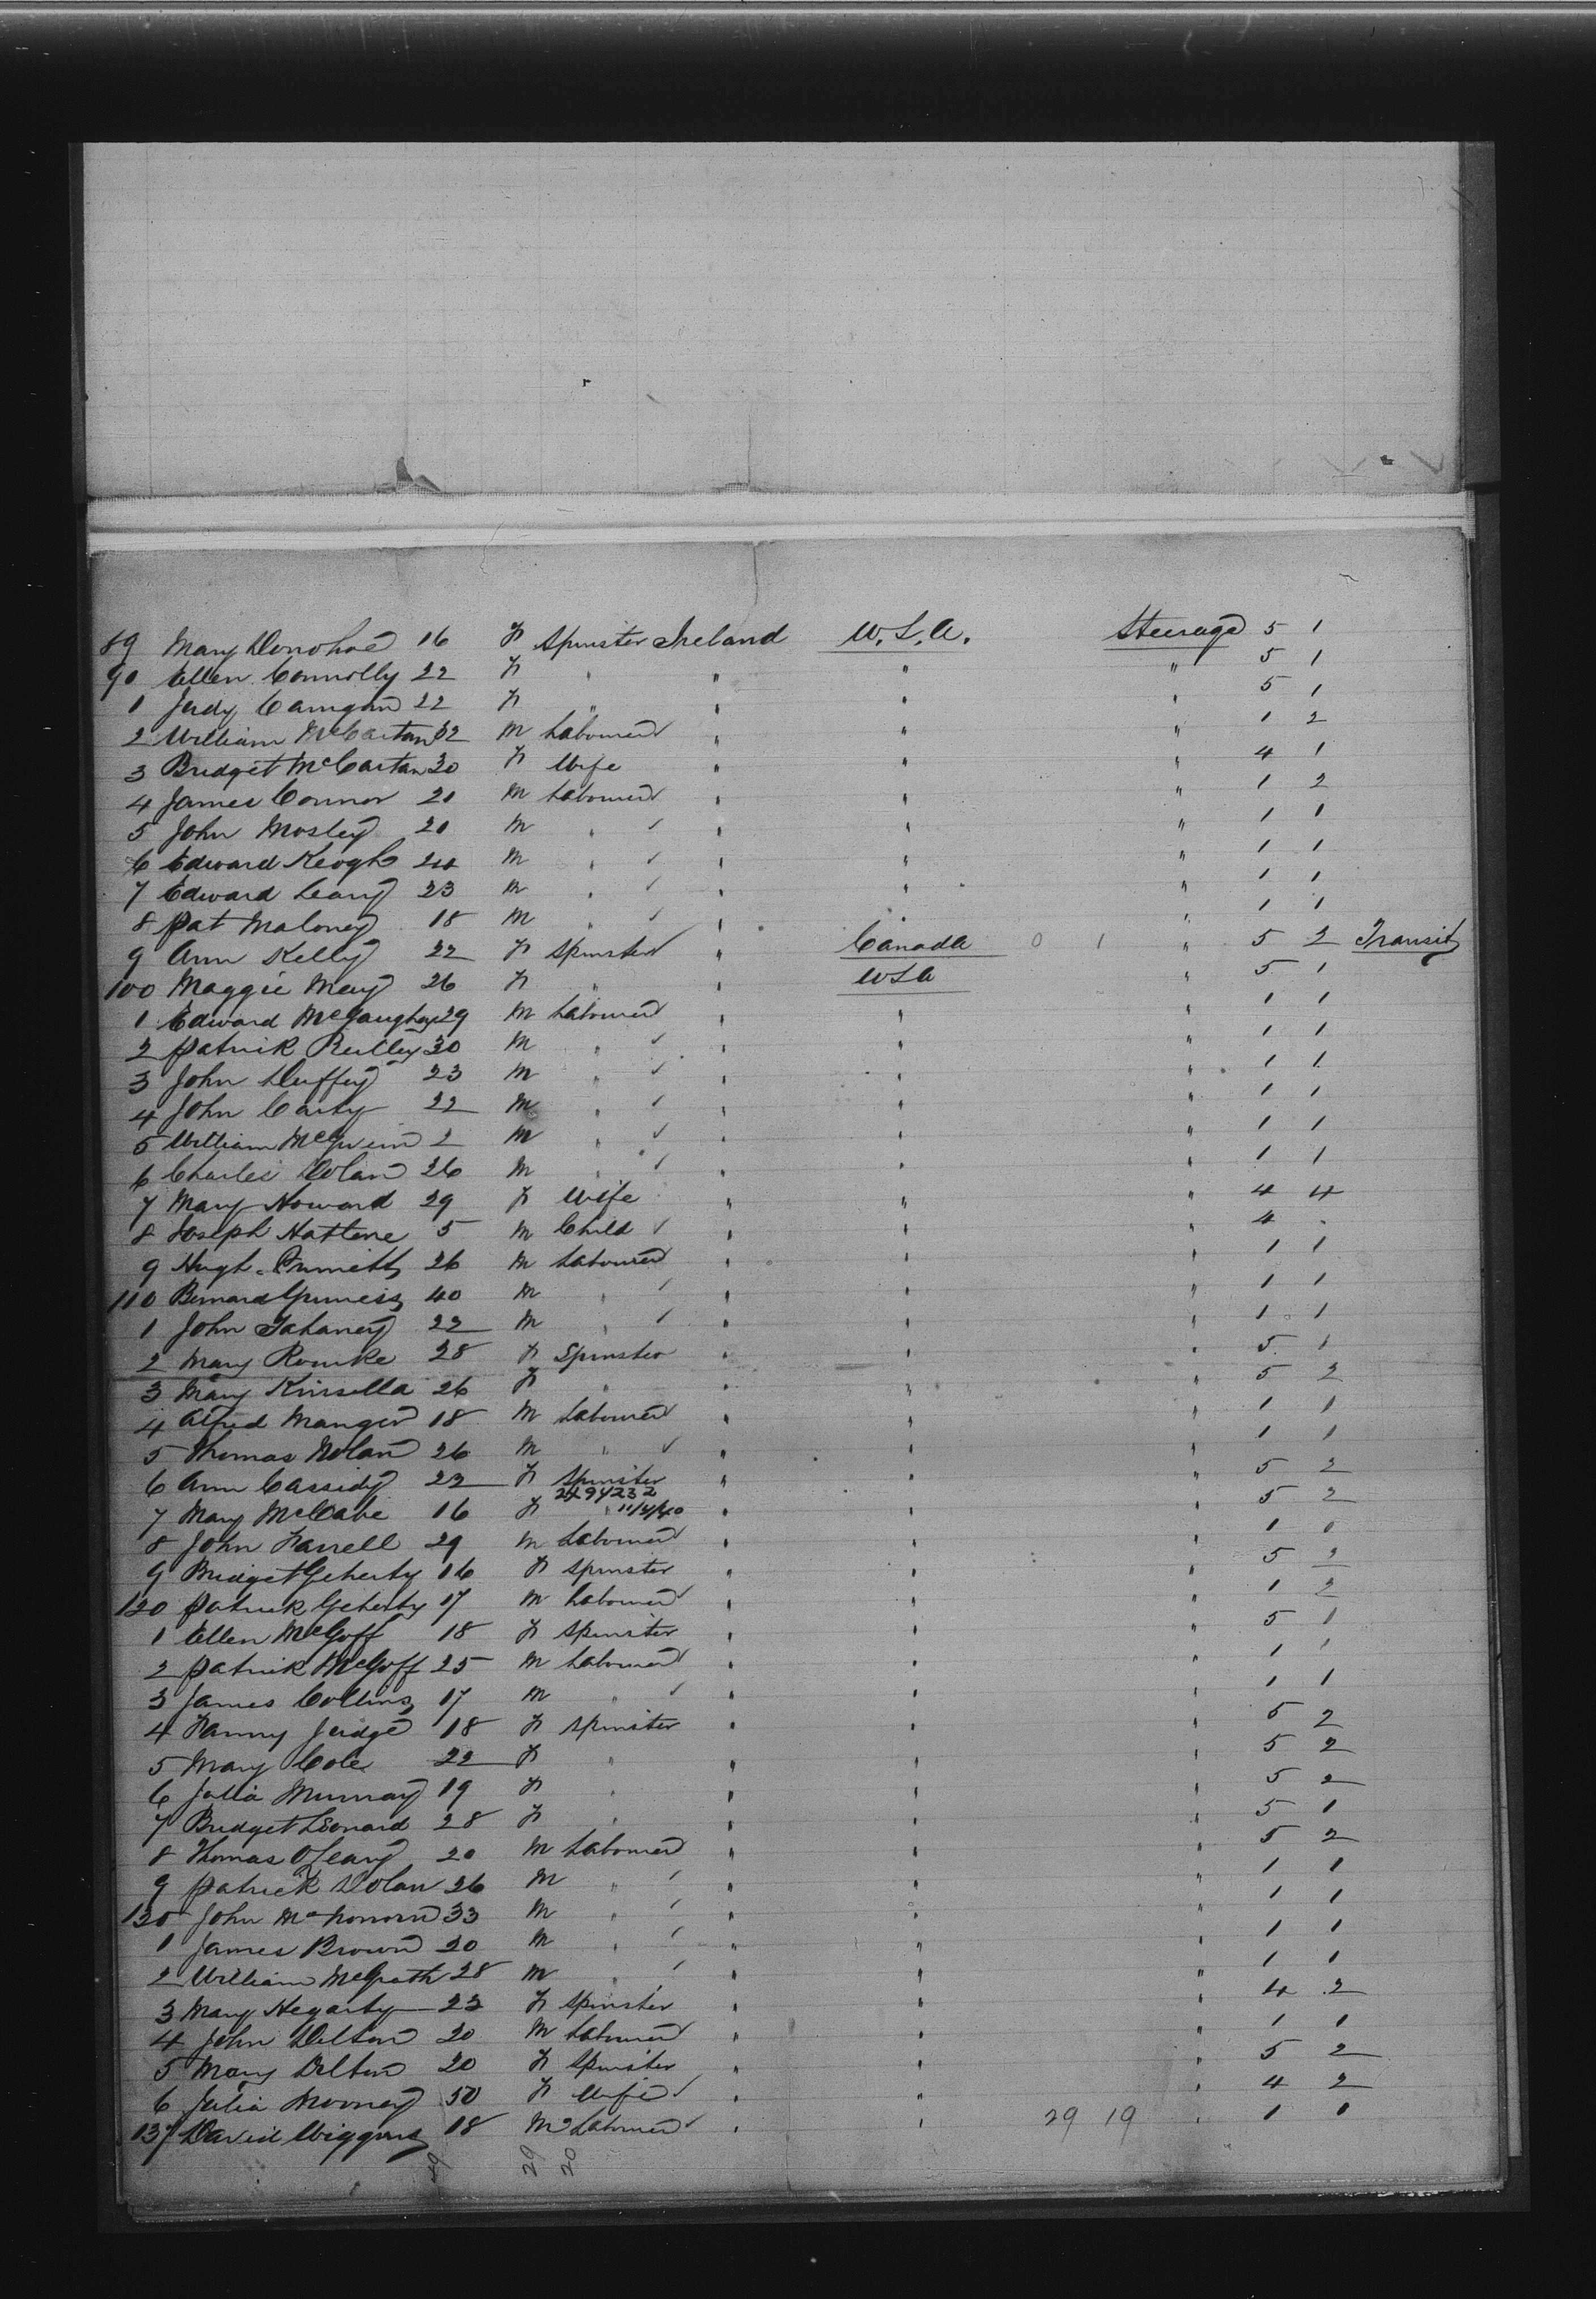 89 Mary Donohoe 16 F Spinster Ireland U.S.A. Steerage 5 1
90 Ellen Connolly 22 F " " " " 5 1
1 Judy Carrigan 22 F " " " " 5 1
2 William McCartan 32 M Labourer " " " 1 2
3 Bridget McCartan 30 F Wife " " " 4 1
4 James Connor 21 M Labourer " " " 1 2
5 John Mosley 20 M " " " " 1 1
6 Edward Keogh 24 M " " " " 1 1
7 Edward Leary 23 M " " " " 1 1
8 Pat Maloney 18 M " " " " 1 1
9 Ann Kelly 22 F Spinster " Canada 0 1 " 5 2 Transit
100 Maggie May 26 F " " USA " 5 1
1 Edward McGaughey 29 M Labourer " " " 1 1
2 Patrick Reilley 30 M " " " " 1 1
3 John Duffey 23 M " " " " 1 1
4 John Carty 22 M " " " " 1 1
5 William 2 M " " " " 1 1
6 Charles Dolan 26 M " " " " 1 1
7 Mary Howard 29 F Wife " " " 4 4
8 Joseph 5 M Child " " " 4
9 Hugh 26 M Labourer " " " 1 1
110 Bernard 40 M " " " " 1 1
1 John Tahaney 22 M " " " " 1 1
2 Mary Rourke 28 F Spinster " " " 5 1
3 Mary Kinsella 26 F " " " " 5 2
4 Alfred Manger 18 M Labourer " " " 1 1
5 Thomas Nolan 26 M " " " " 1 1
6 Ann Cassidy 22 F Spinster " " " 5 2
2494232
7 Mary McCabe 16 F " 11/4/40 " " " 5 2
8 John Farrell 29 M Labourer " " " 1 0
9 Bridget Geherty 16 F Spinster " " " 5 2
120 Patrick Geherty 17 M Labourer " " " 1 2
1 Ellen McGoff 18 F Spinster " " " 5 1
2 Patrick McGoff 25 M Labourer " " " 1 1
3 James Collins 17 M " " " " 1 1
4 Fanny Judge 18 F Spinster " " " 5 2
5 Mary Cole 22 F " " " " 5 2
6 Julia Murray 19 F " " " " 5 2
7 Bridget Leonard 28 F " " " " 5 1
8 Thomas O'Leary 20 M Labourer " " " 5 2
9 Patrick Dolan 26 M " " " " 1 1
130 John 33 M " " " " 1 1
1 James Brown 20 M " " " " 1 1
2 William McGrath 28 M " " " " 1 1
3 Mary Hegarty 22 F Spinster " " " 4 2
4 John Dilton 20 M Labourer " " " 1 1
5 Mary Dilton 20 F Spinster " " " 5 2
6 Julia Mooney 50 F Wife " " " 4 2
137 David Wiggins 18 M Labourer " " 29 19 " 1 1
49 29 20